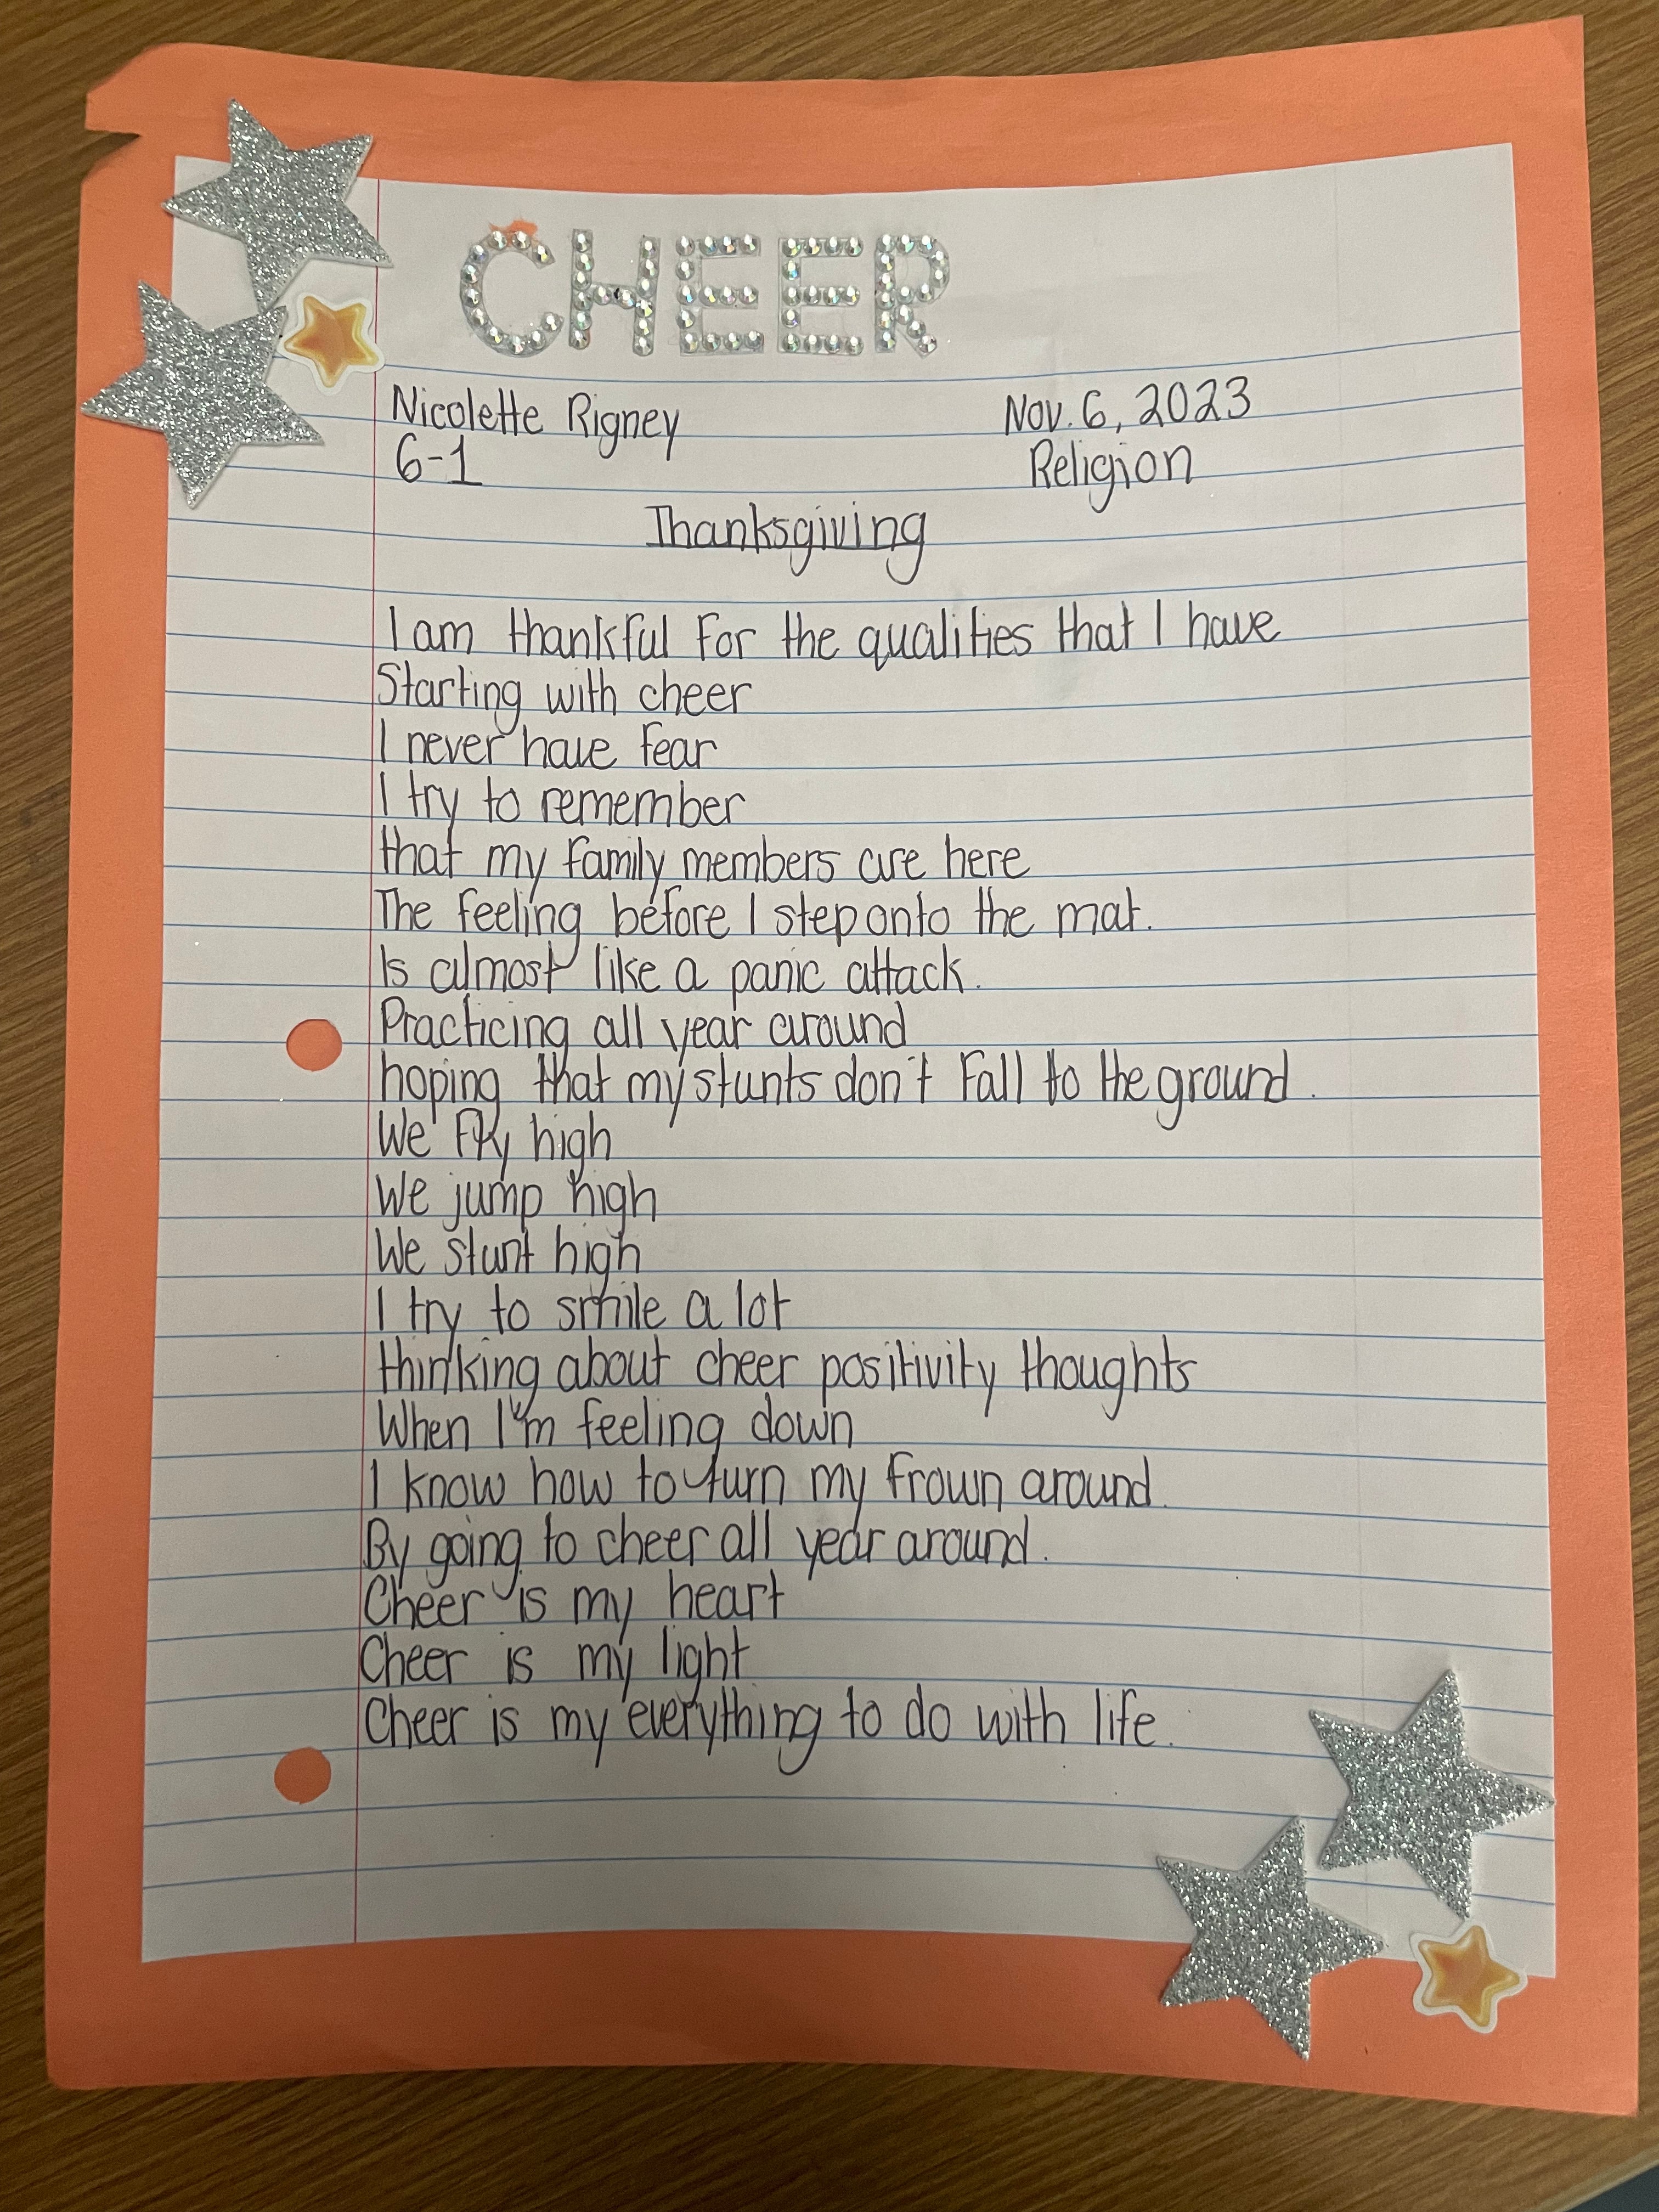 CHEER
Nicolette Rigney Nov. 6, 2023
6-1 Religion
Thanksgiving
I am thankful for the qualities that I have
Starting with cheer
I never have fear
I try to remember
that my family members are here
The feeling before I step onto the mat.
Is almost like a panic attack.
Practicing all year around
hoping that my stunts don't fall to the ground.
We fly high
We jump high
We stunt high
I try to smile a lot
thinking about cheer positivity thoughts
When I'm feeling down
I know how to turn my frown around.
By going to cheer all year around.
Cheer is my heart
Cheer is my light
Cheer is my everything to do with life.